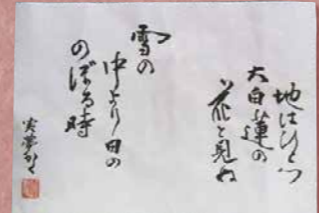 地はひとつ
大白蓮の
花と見ぬ
雪の
中より日の
のぼる時